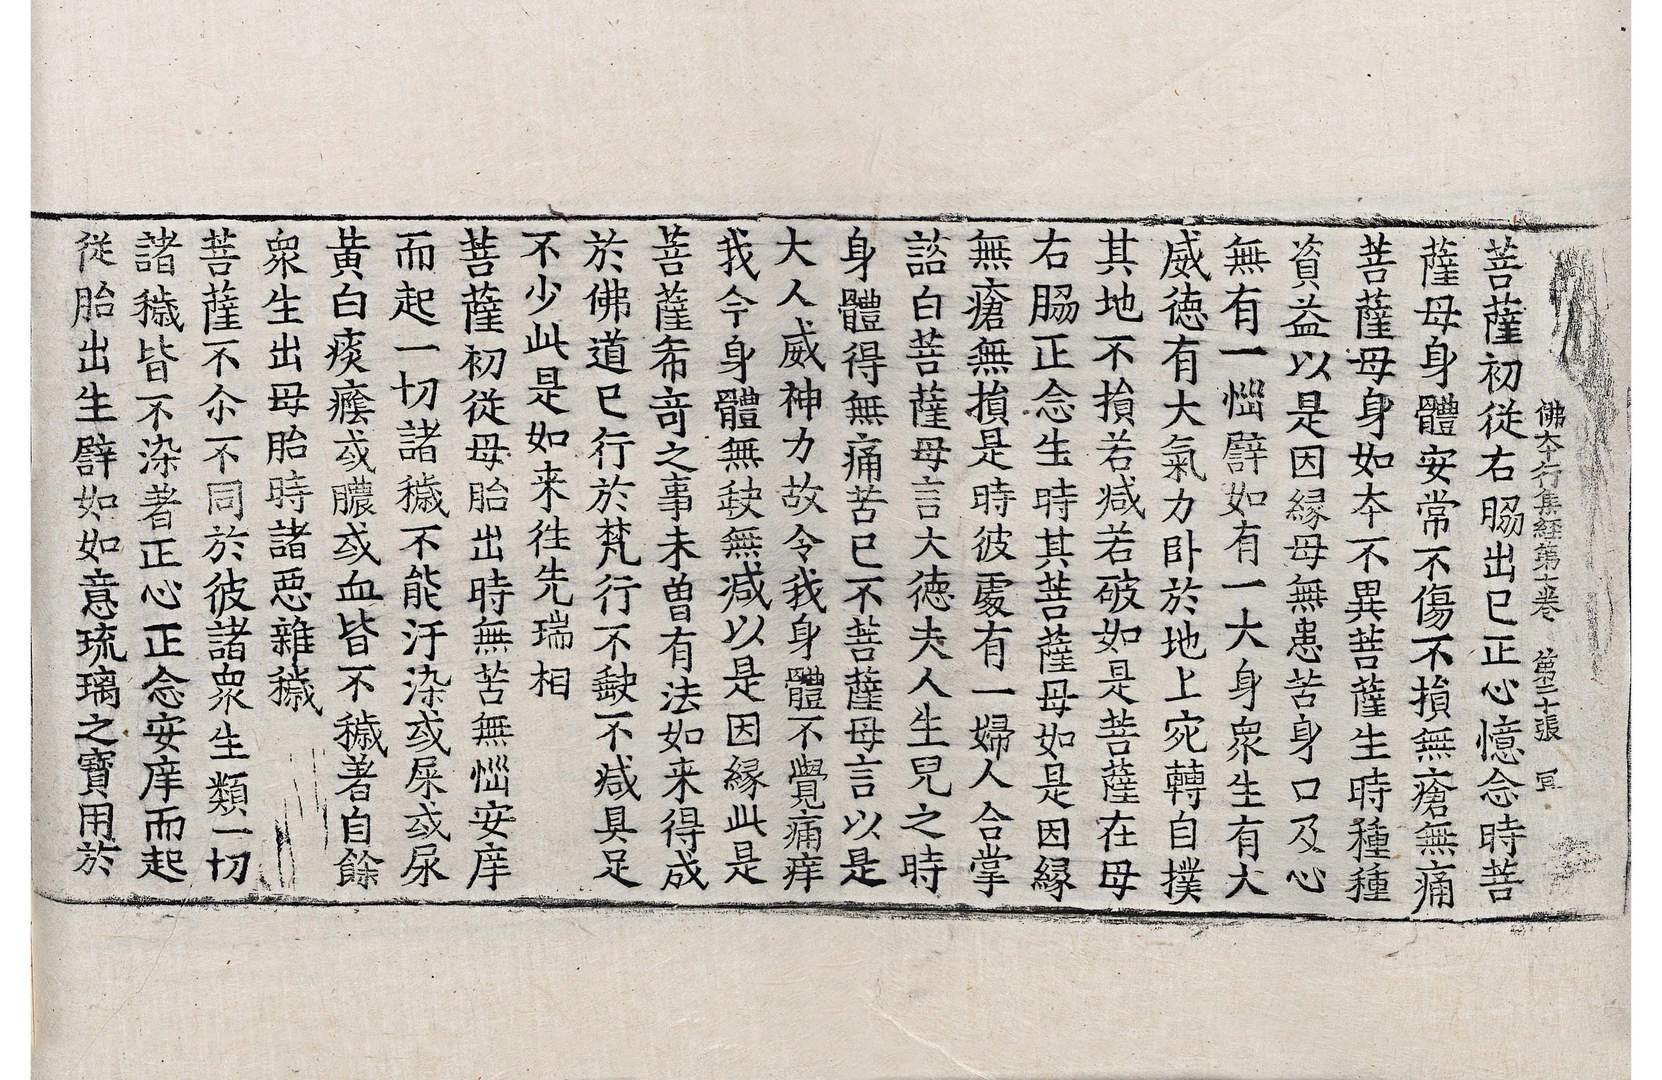 佛夲行集經第七卷 第二十張 冝
菩薩初從右脇出已正心憶念時菩
薩母身體安常不傷不損無瘡無痛
菩薩母身如夲不異菩薩生時種種
資益以是因縁母無患苦身口及心
無有一惱譬如有一大身衆生有大
威德有大氣力卧於地上宛轉自撲
其地不損若減若破如是菩薩在母
右脇正念生時其菩薩母如是因縁
無瘡無損是時彼處有一婦人合掌
諮白菩薩母言大德夫人生兒之時
身體得無痛苦已不菩薩母言以是
大人威神力故令我身體不覺痛痒
我今身體無缺無減以是因縁此是
菩薩希竒之事未曽有法如来得成
於佛道已行於梵行不缺不減具足
不少此是如来徃先瑞相
菩薩初從母胎出時無苦無惱安庠
而起一切諸穢不能汙染或屎或尿
黃白痰癊或膿或血皆不穢著自餘
衆生出母胎時諸惡雜穢
菩薩不尒不同於彼諸衆生類一切
諸穢皆不染著正心正念安庠而起
從胎出生譬如如意琉璃之寶用於